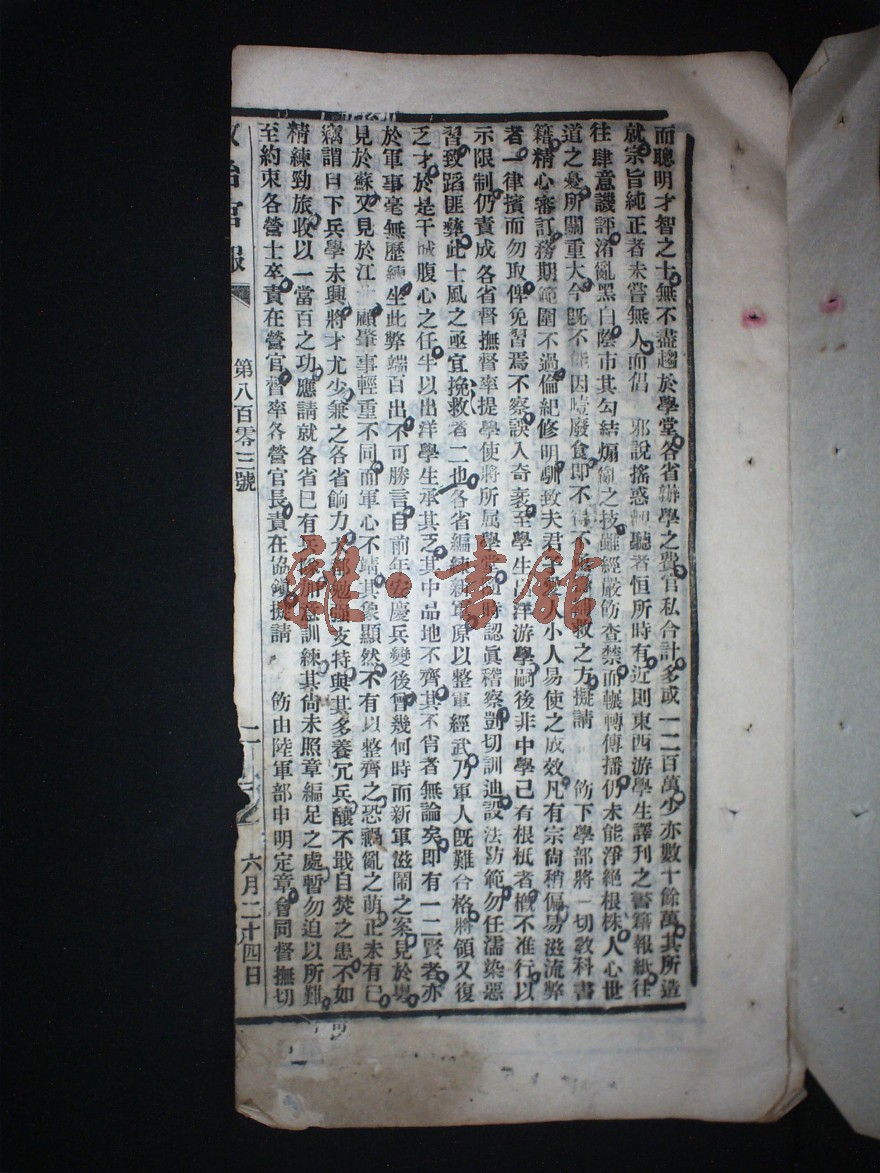 而聰明才智之士無不盡趨於學堂各省辦學之費官私合計多或一二百萬少亦數十餘萬其所造
就宗旨純正者未嘗無人而倡 邪說搖惑 聽者恒所時有近則東西游學生譯刊之書籍報紙往
往肆意譏評淆亂黑白蔭市其勾結煽亂之技雖經嚴飭查禁而輾轉傳播仍未能淨絕根株人心世
道之憂所關重大今既不能因噎廢食即不得不 救之方擬請 飭下學部將一切教科書
籍精心審訂務期範圍不過倫紀修明馴致夫君子 人小人易使之成效凡有宗尚稍偏易滋流弊
者一律擯而勿取俾免習焉不察誤入奇衺至學生出洋游學嗣後非中學已有根柢者概不准行以
示限制仍責成各省督撫督率提學使將所属學堂 時認眞稽察剴切訓迪設法防範勿任濡染惡
習致蹈匪彝此士風之亟宜挽救者二也各省編練新軍原以整軍經武乃軍人旣難合格將領又復
乏才於是干城腹心之任半以出洋學生承其乏其中品地不齊其不肖者無論矣即有一二賢者亦
於軍事毫無歷練坐此弊端百出不可勝言自前年安慶兵變後曾幾何時而新軍滋鬧之案見於粵
見於蘇又見於江 顧肇事輕重不同而軍心不靖其象顯然不有以整齊之恐禍亂之萌正未有已
竊謂目下兵學未興將才尤少兼之各省餉力 勉强支持與其多養冗兵釀不戢自焚之患不如
精練勁旅收以一當百之功應請就各省已有 訓練其尙未照章編足之處暫勿迫以所難
至約束各營士卒責在營官督率各營官長責在協 擬請 飭由陸軍部申明定章會同督撫切
政治官報 第八百零三號 六月二十四日
雜·書館